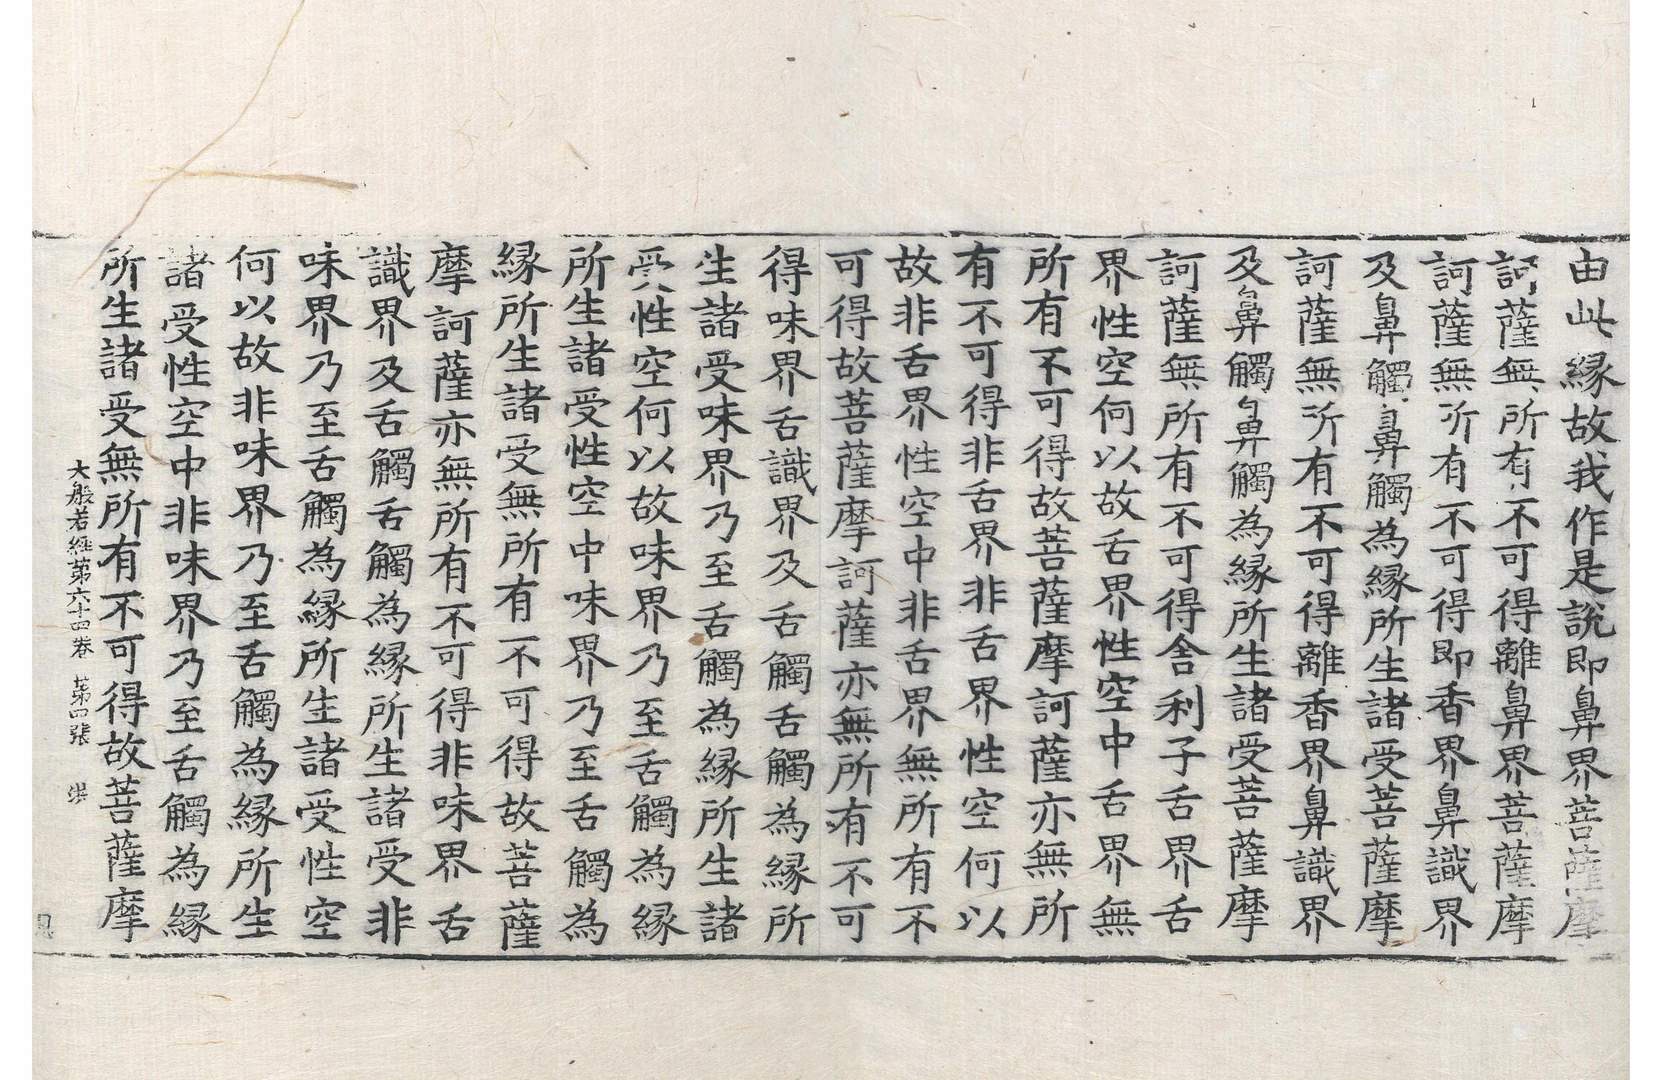 由此縁故我作是說即鼻界菩薩摩
訶薩無所有不可得離鼻界菩薩摩
訶薩無所有不可得即香界鼻識界
及鼻觸鼻觸為縁所生諸受菩薩摩
訶薩無所有不可得離香界鼻識界
及鼻觸鼻觸為縁所生諸受菩薩摩
訶薩無所有不可得舍利子舌界舌
界性空何以故舌界性空中舌界無
所有不可得故菩薩摩訶薩亦無所
有不可得非舌界非舌界性空何以
故非舌界性空中非舌界無所有不
可得故菩薩摩訶薩亦無所有不可
得味界舌識界及舌觸舌觸為縁所
生諸受味界乃至舌觸為縁所生諸
受性空何以故味界乃至舌觸為縁
所生諸受性空中味界乃至舌觸為
縁所生諸受無所有不可得故菩薩
摩訶薩亦無所有不可得非味界舌
識界及舌觸舌觸為縁所生諸受非
味界乃至舌觸為縁所生諸受性空
何以故非味界乃至舌觸為縁所生
諸受性空中非味界乃至舌觸為縁
所生諸受無所有不可得故菩薩摩
大般若經苐六十四卷 苐四張 洪